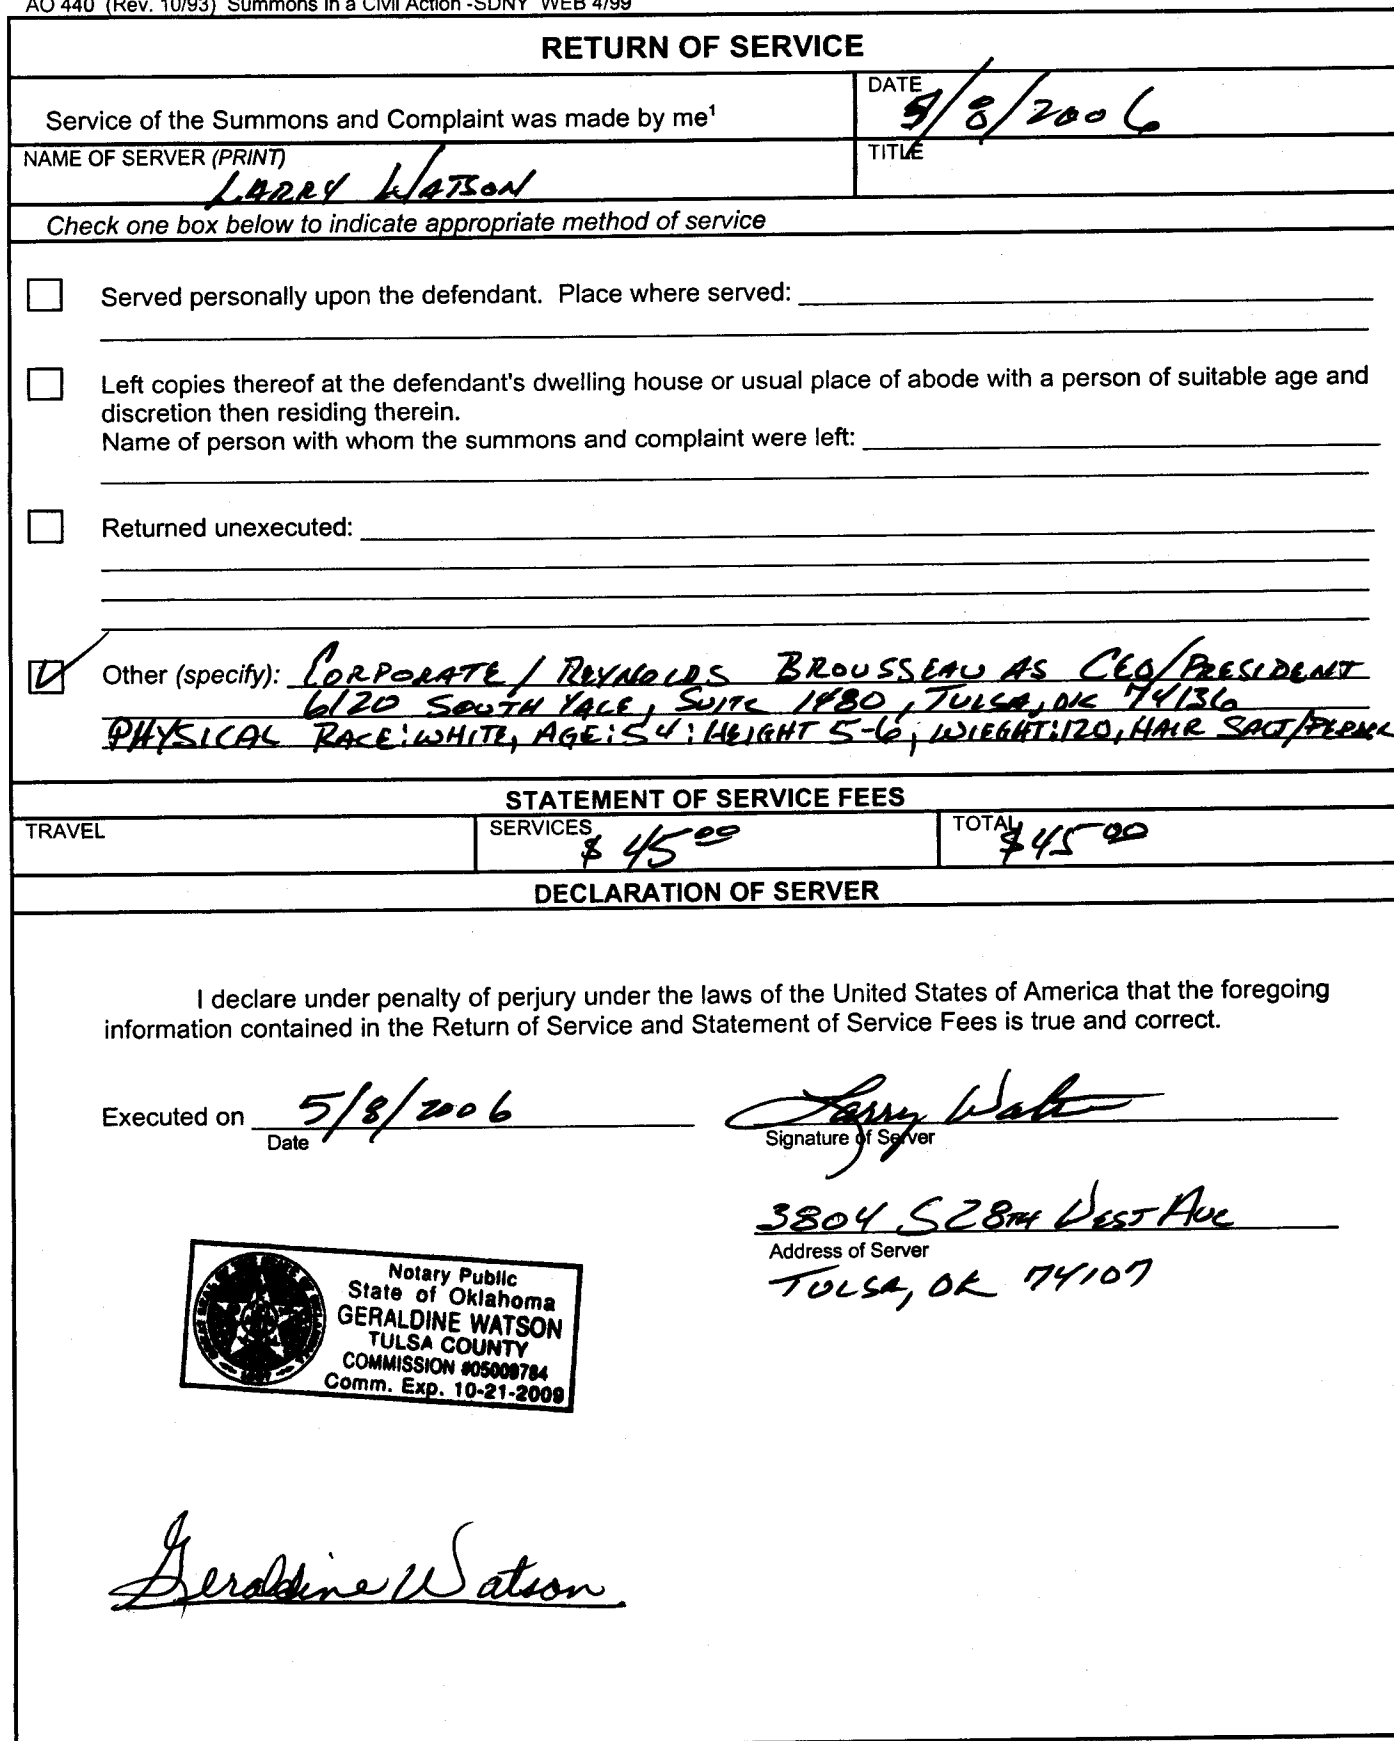 AO 440 (Rev. 10/93) Summons In a Civil Action -SDNY WEB 4/99
RETURN OF SERVICE
Service of the Summons and Complaint was made by me¹
DATE
5/8/2006
NAME OF SERVER (PRINT)
LARRY WATSON
TITLE
Check one box below to indicate appropriate method of service
Served personally upon the defendant. Place where served:
Left copies thereof at the defendant's dwelling house or usual place of abode with a person of suitable age and
discretion then residing therein.
Name of person with whom the summons and complaint were left:
Returned unexecuted:
Other (specify): CORPORATE / REYNOLDS BROUSSEAU AS CEO/PRESIDENT
6120 SOUTH YALE, SUITE 1480, TULSA, OK 74136
PHYSICAL RACE: WHITE, AGE: 54; HEIGHT 5-6; WIEGHT: 120, HAIR SALT/PEPPER
STATEMENT OF SERVICE FEES
TRAVEL
SERVICES
$ 45 00
TOTAL
$45 00
DECLARATION OF SERVER
I declare under penalty of perjury under the laws of the United States of America that the foregoing
information contained in the Return of Service and Statement of Service Fees is true and correct.
Executed on 5/8/2006
Date
Larry Watson
Signature of Server
3804 S 28TH WEST AVE
Address of Server
TULSA, OK 74107
Notary Public
State of Oklahoma
GERALDINE WATSON
TULSA COUNTY
COMMISSION #05009784
Comm. Exp. 10-21-2009
Geraldine Watson